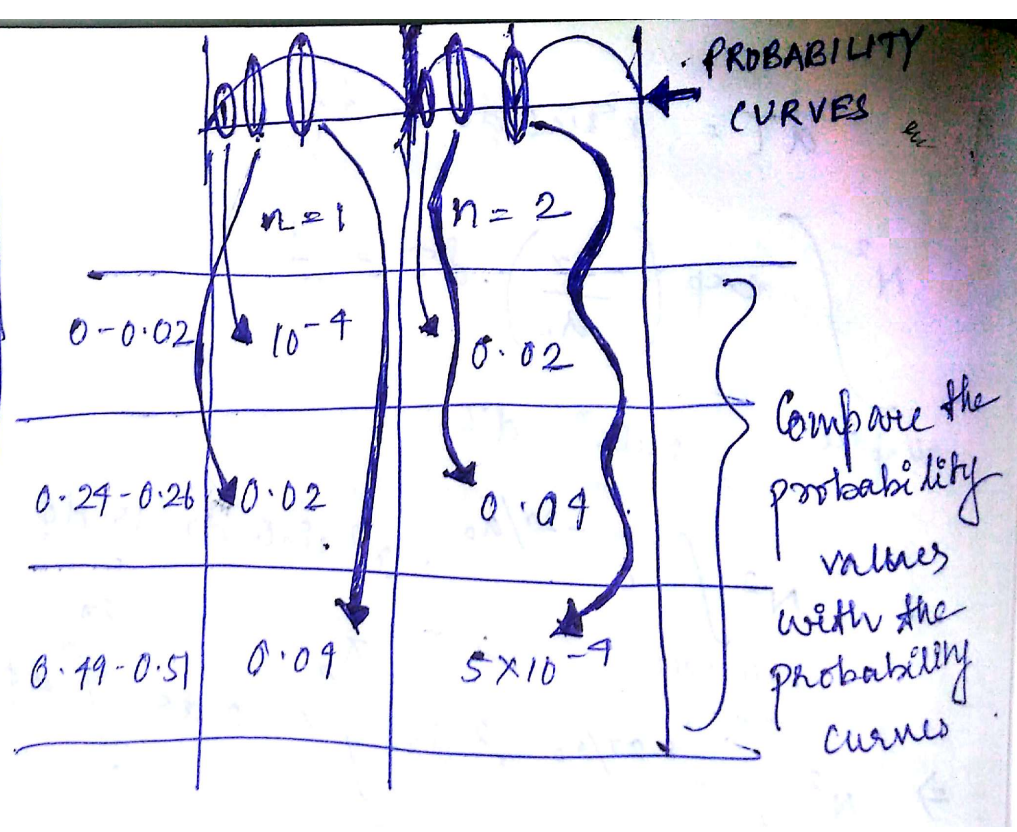 PROBABILITY
CURVES
n = 1
n = 2
0-0.02
10⁻⁴
0.02
0.24-0.26
0.02
0.04
0.49-0.51
0.04
5×10⁻⁴
Compare the
probability
values
with the
probability
curves